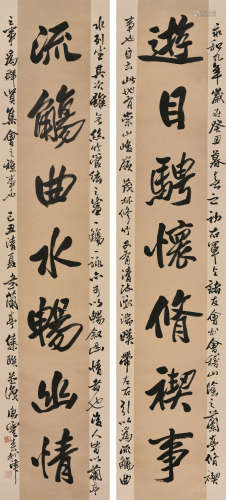 永和九年歲在癸丑暮春之初右軍与諸友會於會稽山陰之蘭亭脩禊
遊目騁懷脩禊事
事也此地有崇山峻嶺茂林修竹又有清流激湍暎帶左右引以為流觴曲
水列坐其次雖無絲竹管弦之盛一觴一詠亦可以暢敘幽情者也後人皆以蘭亭
流觴曲水暢幽情
之事為群賢集會之樂事也己丑清夏蘭亭集聯